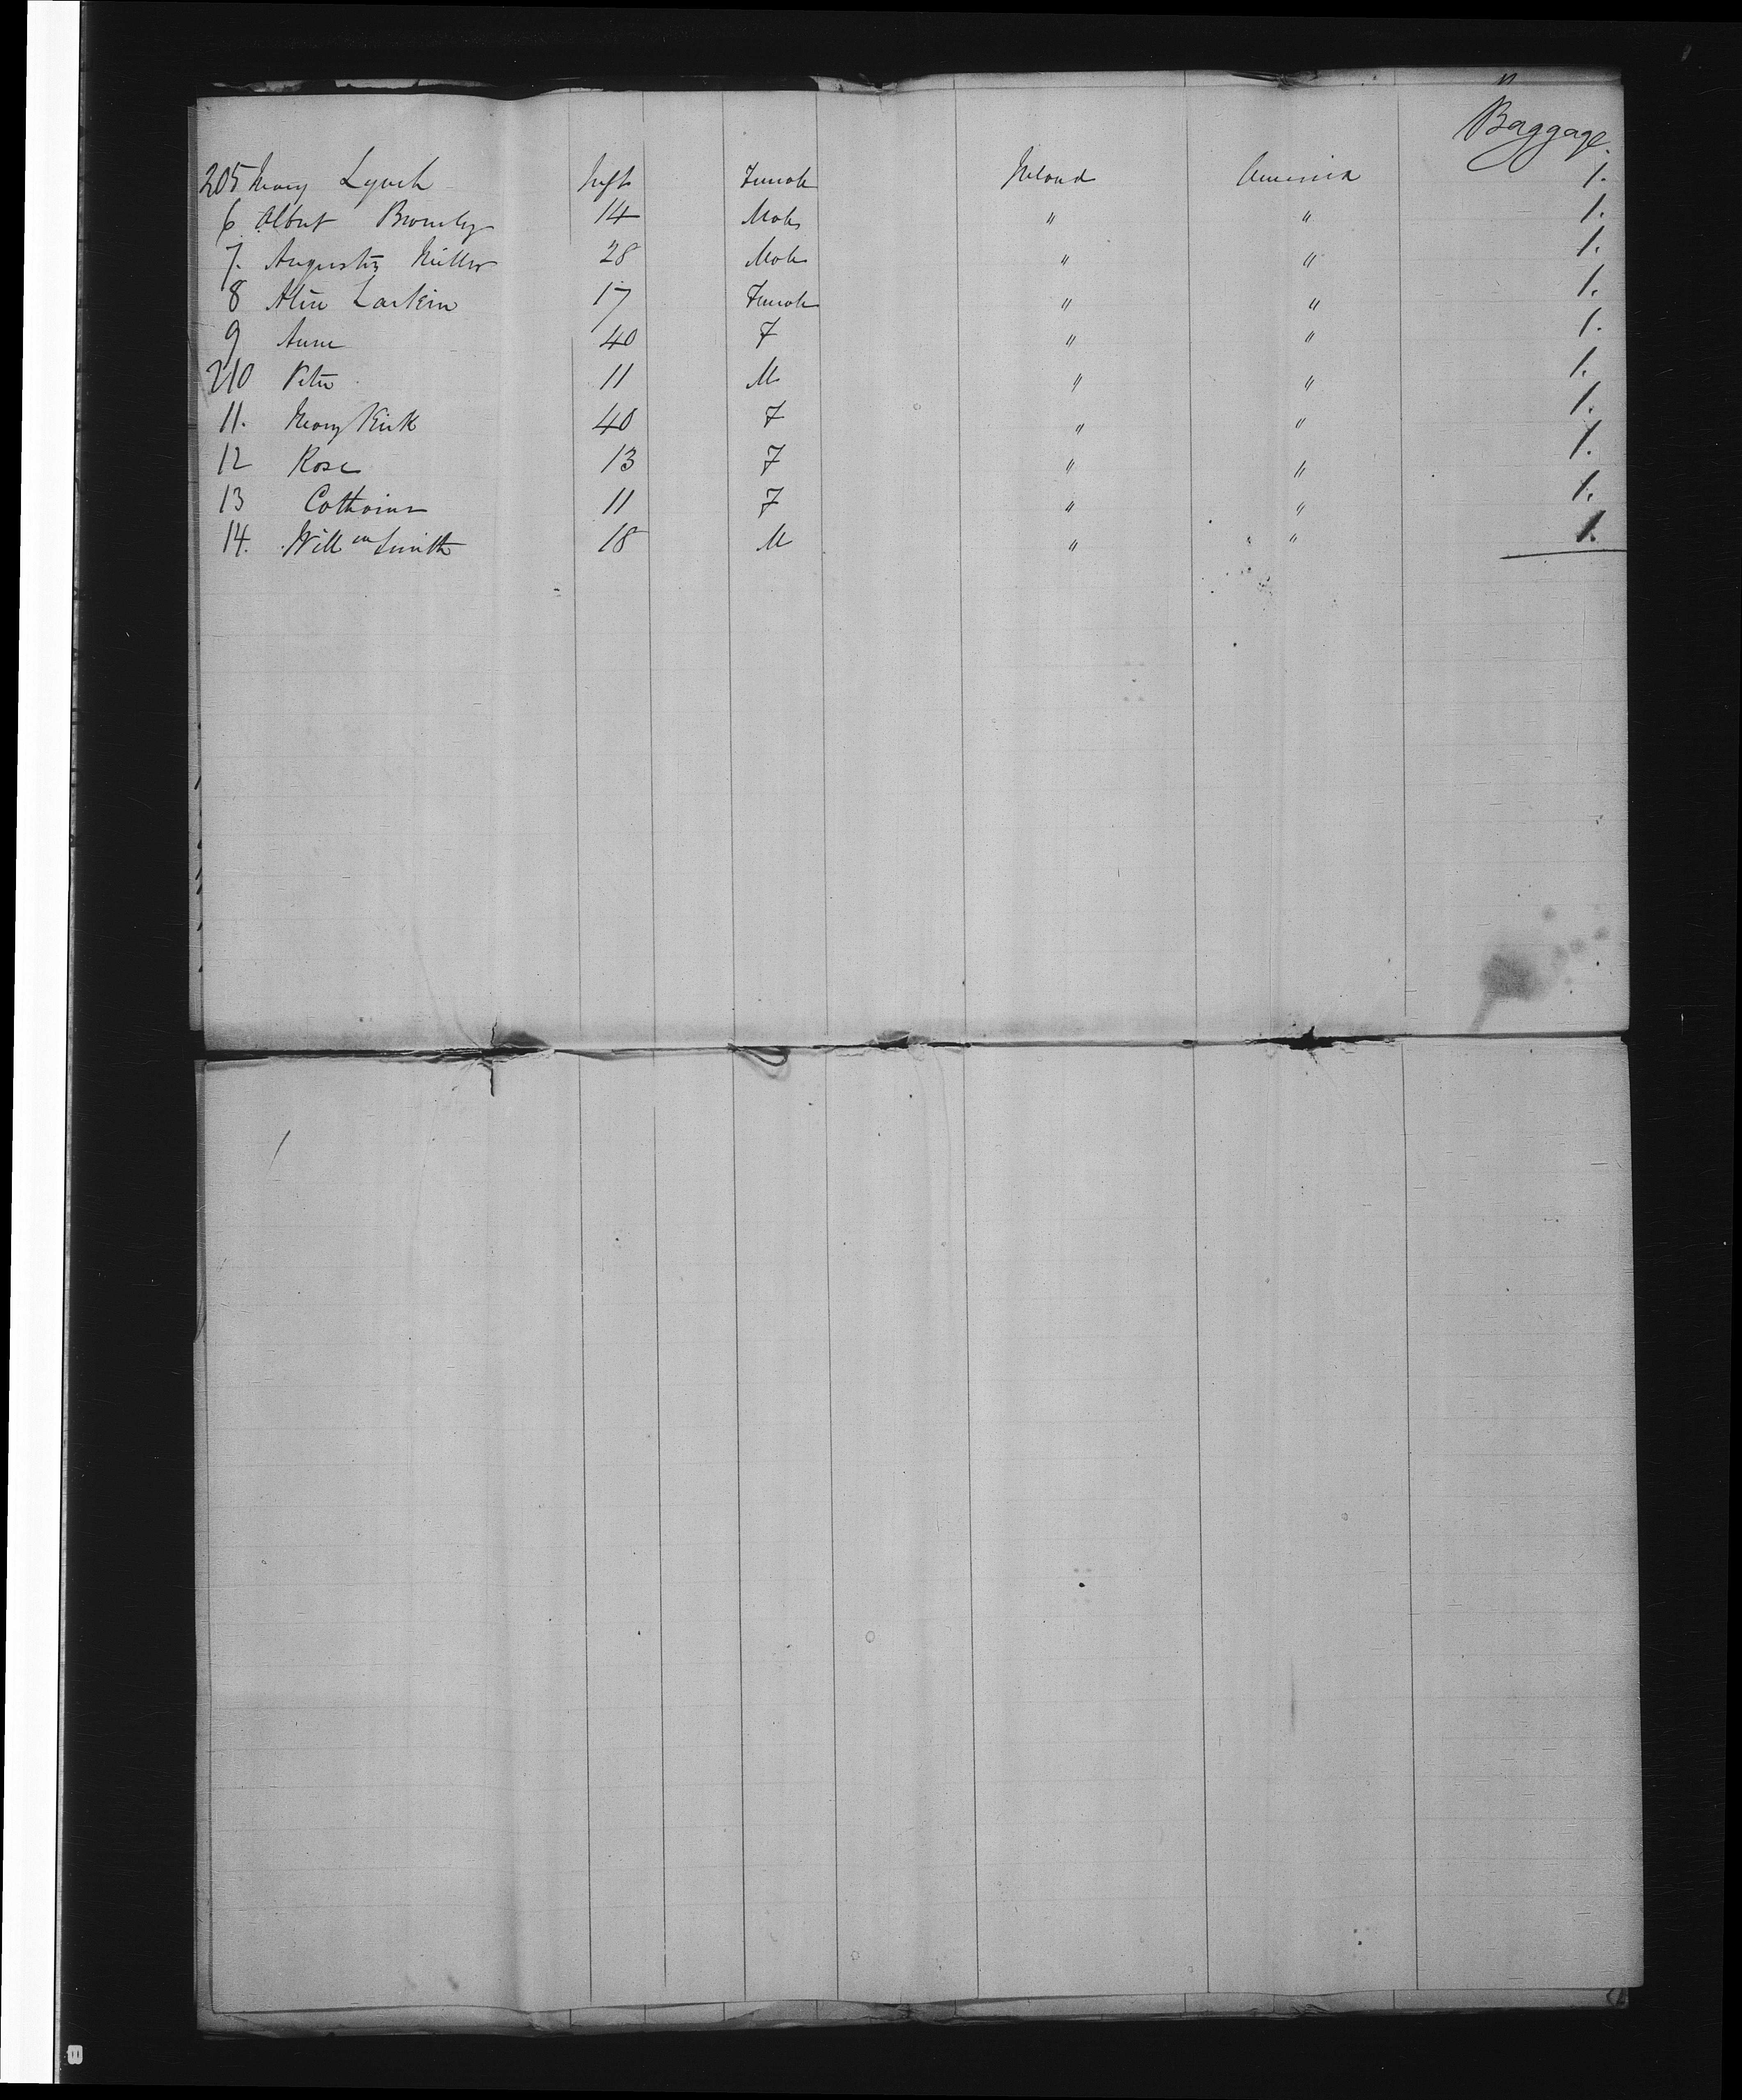 Baggage.
205 Mary Lynch Inft Female Ireland America 1.
6 Albert Bromley 14 Male " " 1.
7. Augustus Miller 28 Male " " 1.
8 Alice Larkin 17 Female " " 1.
9 Anne 40 F " " 1.
210 Peter 11 M " " 1.
11. Mary Kirk 40 F " " 1.
12 Rose 13 F " " 1.
13 Catharine 11 F " " 1.
14. Willm Smith 18 M " " 1.